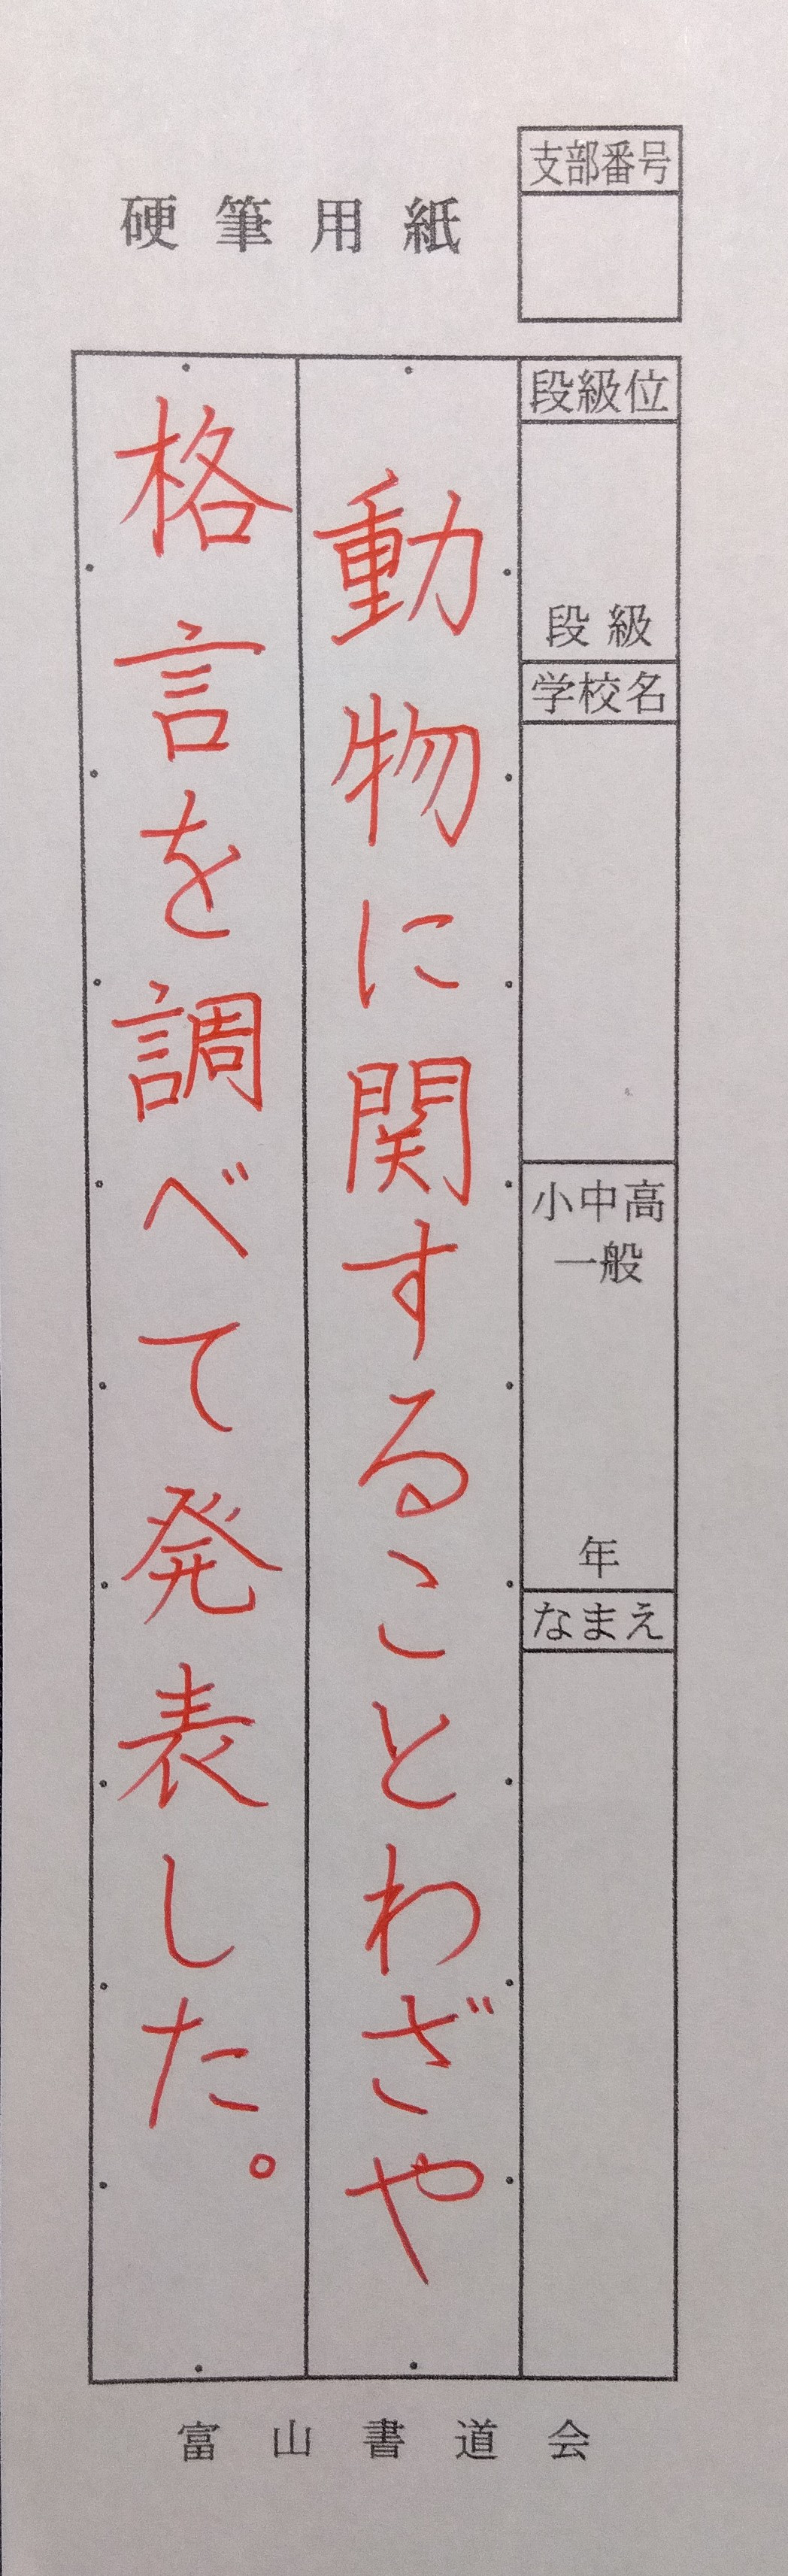 硬筆用紙
支部番号
段級位
段級
学校名
小中高
一般
年
なまえ
動物に関することわざや
格言を調べて発表した。
富山書道会